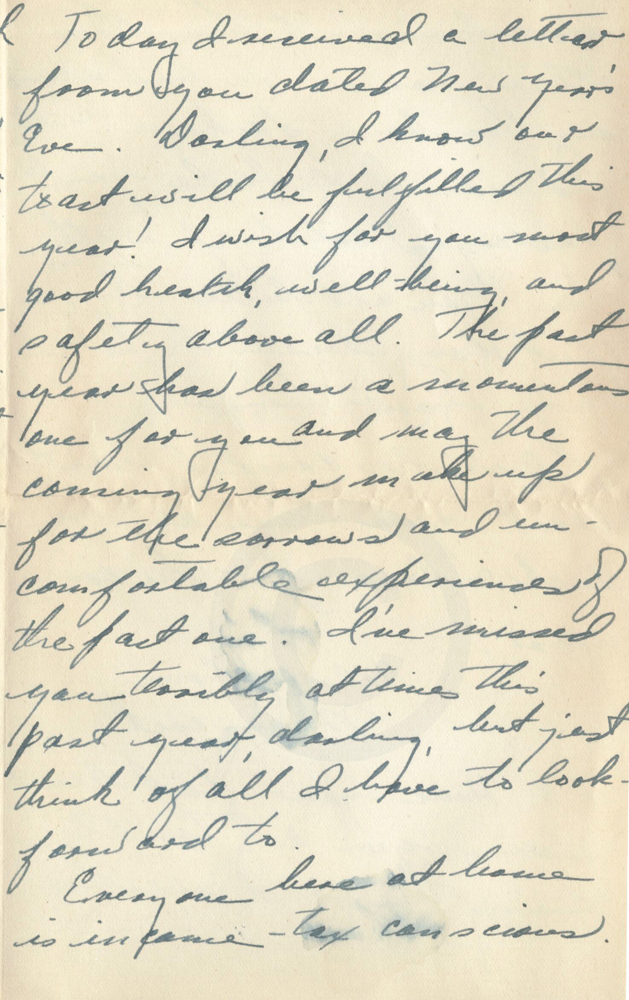 Today I received a letter
from you dated New Year's
Eve. Darling, I know our
toast will be fulfilled this
year! I wish for you most
good health, well-being, and
safety above all. The past
year has been a momentous
one for you and may the
coming year make up
for the sorrows and un-
comfortable experiences of
the past one. I've missed
you terribly at times this
past year, darling, but just
think of all I have to look-
forward to.
Everyone here at home
is income-tax conscious.